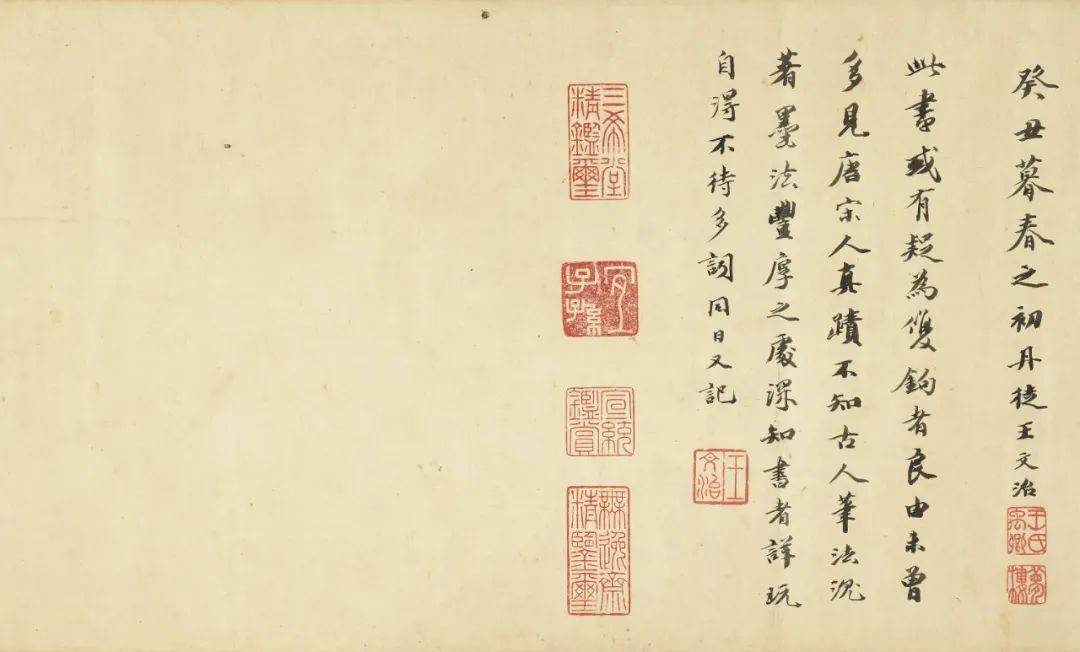 癸丑暮春之初丹徒王文治
王氏禹卿
夢樓
此書或有疑為雙鉤者良由未曾
多見唐宋人真蹟不知古人筆法沉
著墨法豐厚之處深知書者詳玩
自得不待多詞同日又記
王文治
三希堂精鑑璽
宜子孫
宣統鑑賞
無逸齋精鑒璽